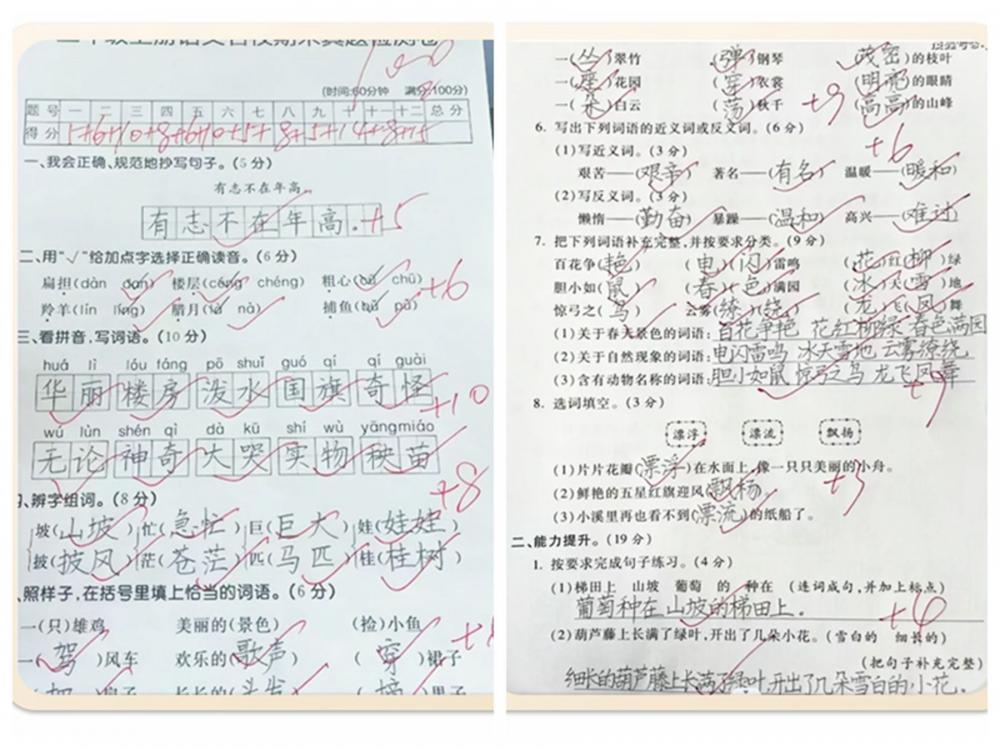 二年级上册语文名校期末真题检测卷
100
(时间:60分钟 满分:100分)
题号 一 二 三 四 五 六 七 八 九 十 十一 十二 总分
得分 5+6+10+8+6+10+5+8+5+14+8+15
一、我会正确、规范地抄写句子。(5分)
有志不在年高。
有志不在年高. +5
二、用“√”给加点字选择正确读音。(6分)
扁担(dàn dan) 楼层(céng chéng) 粗心(cū chū)
羚羊(lín líng) 腊月(là nà) 捕鱼(bǔ pǔ) +6
三、看拼音,写词语。(10分)
huá lì lóu fáng pō shuǐ guó qí qí guài
华丽 楼房 泼水 国旗 奇怪 +10
wú lùn shén qí dà kū shí wù yāng miáo
无论 神奇 大哭 实物 秧苗
四、辨字组词。(8分) +8
坡(山坡) 忙(急忙) 巨(巨大) 娃(娃娃)
披(披风) 茫(苍茫) 匹(马匹) 桂(桂树)
照样子,在括号里填上恰当的词语。(6分)
一(只)雄鸡 美丽的(景色) (捡)小鱼
一(驾)风车 欢乐的(歌声) (穿)裙子
长长的(头发) (摘)果子
一(丛)翠竹 (弹)钢琴 (茂密)的枝叶
一(座)花园 (穿)衣裳 (明亮)的眼睛
一(朵)白云 (荡)秋千 (高高)的山峰 +9
6. 写出下列词语的近义词或反义词。(6分)
(1)写近义词。(3分) +6
艰苦——(艰辛) 著名——(有名) 温暖——(暖和)
(2)写反义词。(3分)
懒惰——(勤奋) 暴躁——(温和) 高兴——(难过)
7. 把下列词语补充完整,并按要求分类。(9分)
百花争(艳) (电)(闪)雷鸣 (花)红(柳)绿
胆小如(鼠) (春)(色)满园 (冰)天(雪)地
惊弓之(鸟) 云雾(缭)(绕) (龙)飞(凤)舞
(1)关于春天景色的词语:百花争艳 花红柳绿 春色满园
(2)关于自然现象的词语:电闪雷鸣 冰天雪地 云雾缭绕
(3)含有动物名称的词语:胆小如鼠 惊弓之鸟 龙飞凤舞 +9
8. 选词填空。(3分)
漂浮 漂流 飘扬
(1)片片花瓣(漂浮)在水面上,像一只只美丽的小舟。
(2)鲜艳的五星红旗迎风(飘杨)。 +3
(3)小溪里再也看不到(漂流)的纸船了。
二、能力提升。(19分)
1. 按要求完成句子练习。(4分)
(1)梯田上 山坡 葡萄 的 种在 (连词成句,并加上标点)
葡萄种在山坡的梯田上. +4
(2)葫芦藤上长满了绿叶,开出了几朵小花。(雪白的 细长的)
(把句子补充完整)
细长的葫芦藤上长满了绿叶,开出了几朵雪白的小花.